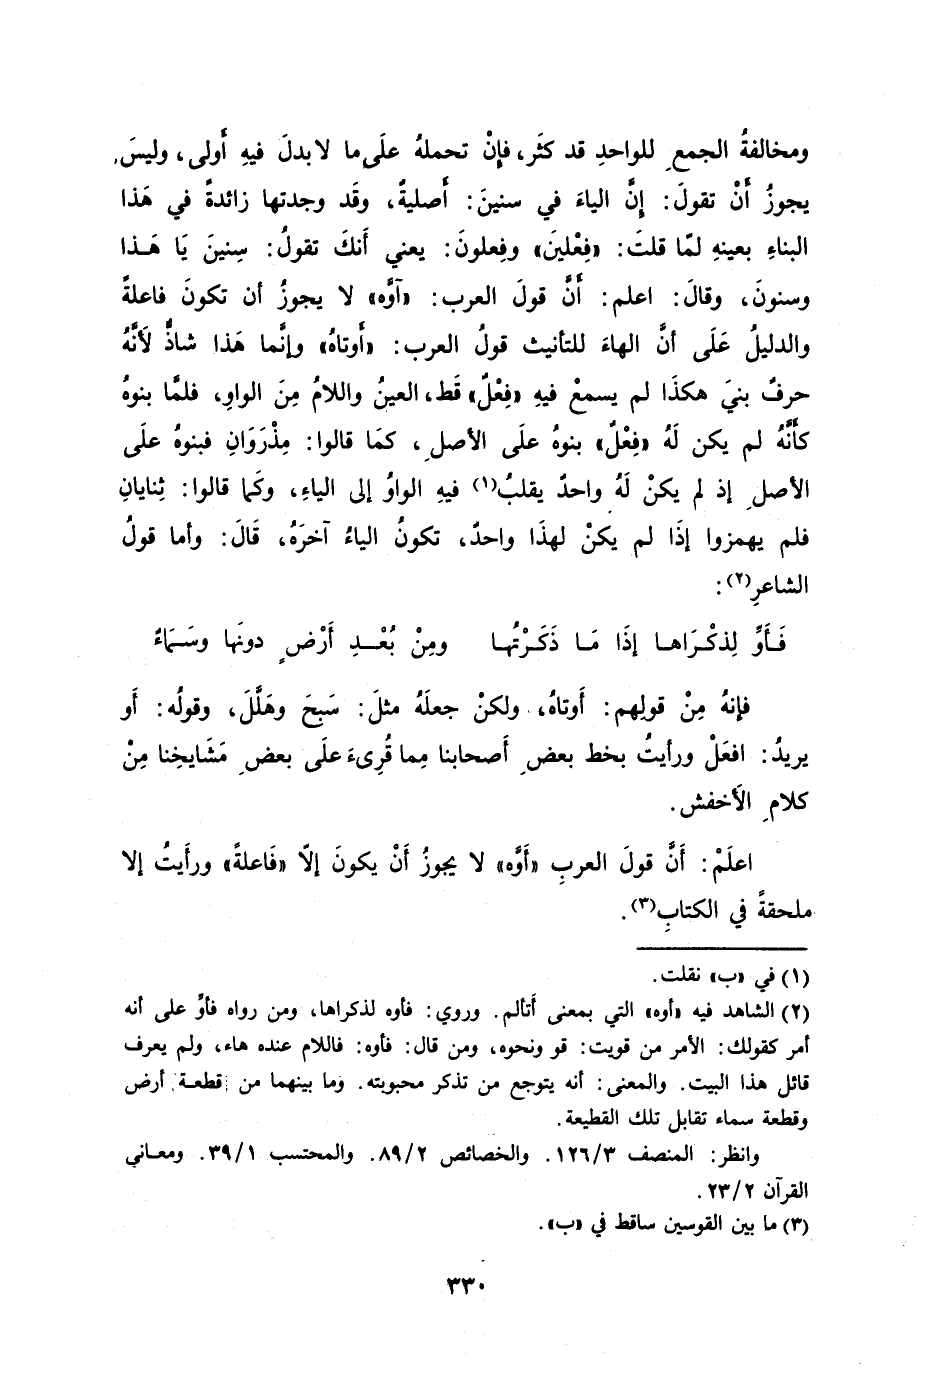 ومخالفةُ الجمعِ للواحدِ قد كثَر، فإنْ تحملهُ علَى ما لا بدلَ فيهِ أَولى، وليسَ
يجوزُ أَنْ تقولَ: إنَّ الياءَ في سنينَ: أَصليةٌ، وقَد وجدتها زائدةً في هَذا
البناءِ بعينهِ لمّا قلتَ: «فِعْلينَ» وفِعلونَ: يعني أَنكَ تقولُ: سِنينَ يَا هَـذا
وسنونَ، وقالَ: اعلم: أَنَّ قولَ العرب: «آوَّه» لا يجوزُ أن تكونَ فاعلةً
والدليلُ عَلَى أنَّ الهاءَ للتأنيث قولُ العرب: «أَوتاهُ» وإنَّما هَذا شاذٌّ لأَنَّهُ
حرفٌ بنيَ هكذَا لم يسمعْ فيهِ «فِعْلٌ» قَط، العينُ واللامُ مِنَ الواوِ، فلمَّا بنوهُ
كأَنَّهُ لم يكن لَهُ «فِعْلٌ» بنوهُ علَى الأصلِ، كمَا قالوا: مِذْرَوَانِ فبنوهُ علَى
الأصلِ إذ لم يكنْ لَهُ واحدٌ يقلبُ(١) فيهِ الواوُ إلى الياءِ، وكما قالوا: ثِنايانِ
فلم يهمزوا إذَا لم يكنْ لهذَا واحدٌ، تكونُ الياءُ آخرَهُ، قَالَ: وأما قولُ
الشاعرِ(٢):
فَـأَوِّ لِذكْـرَاهـا إذَا مَـا ذَكَـرْتُهـا ومِنْ بُعْـدِ أَرْضٍ دونَها وسَـمَاءُ
فإنهُ مِنْ قولِهم: أَوتاهُ، ولكنْ جعلَهُ مثلَ: سَبحَ وهَلَّلَ، وقولُه: أَو
يريدُ: افعَلْ ورأيتُ بخط بعضِ أَصحابنا مِما قُرِىءَ علَى بعضِ مَشَايخِنا مِنْ
كلامِ الأَخفش.
اعلَمْ: أَنَّ قولَ العربِ «أَوَّه» لا يجوزُ أَنْ يكونَ إلّا «فَاعلةً» ورأَيتُ إلا
ملحقةً في الكتابِ(٣).
(١) في «ب» نقلت.
(٢) الشاهد فيه «أوه» التي بمعنى أَتألم. وروي: فأوه لذكراها، ومن رواه فأوِّ على أنه
أمر كقولك: الأمر من قويت: قو ونحوه، ومن قال: فأوه: فاللام عنده هاء، ولم يعرف
قائل هذا البيت. والمعنى: أنه يتوجع من تذكر محبوبته. وما بينهما من قطعة أرض
وقطعة سماء تقابل تلك القطيعة.
وانظر: المنصف ١٢٦/٣. والخصائص ٨٩/٢. والمحتسب ٣٩/١. ومعـاني
القرآن ٢٣/٢.
(٣) ما بين القوسين ساقط في «ب».
٣٣٠